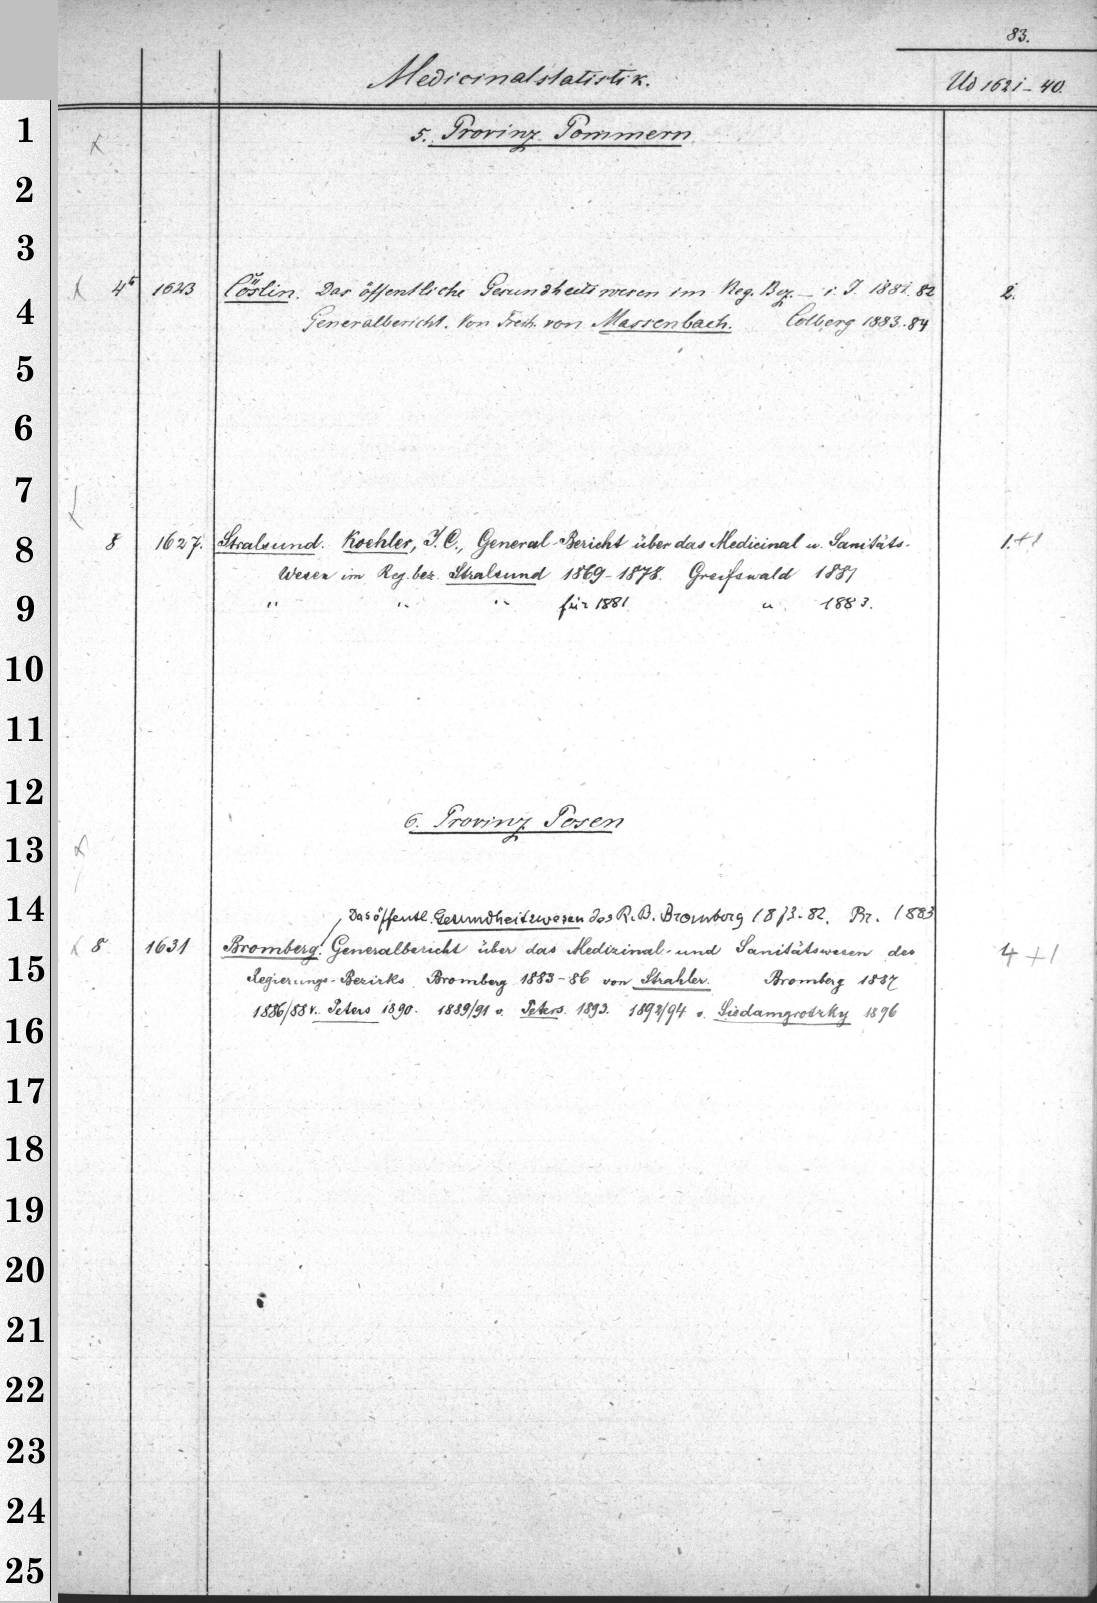 83.
Medicinalstatistik. Ud 1621-40.
1 5. Provinz Pommern
2
3
4° 1623 Cöslin. Das öffentliche Gesundheitswesen im Reg. Bez. — i. J. 1881.82 2.
4 Generalbericht. Von Freih. von Massenbach. Colberg 1883.84
5
6
7
8 8 1627. Stralsund. Koehler, J. C., General-Bericht über das Medicinal u. Sanitäts- 1.+1
Wesen im Reg. bez. Stralsund 1869-1878. Greifswald 1881
9 " " " für 1881 " 1883.
10
11
12
6. Provinz Posen
13
14 Das öffentl. Gesundheitswesen des R. B. Bromberg 1873-82. Br. 1883
8 1631 Bromberg. Generalbericht über das Medizinal- und Sanitätswesen des 4 +1
15 Regierungs-Bezirks Bromberg 1883-86 von Strahler. Bromberg 1887
16 1886/88 v. Peters 1890. 1889/91 v. Peters. 1893. 1892/94 v. Siedamgrotzky 1896
17
18
19
20
21
22
23
24
25